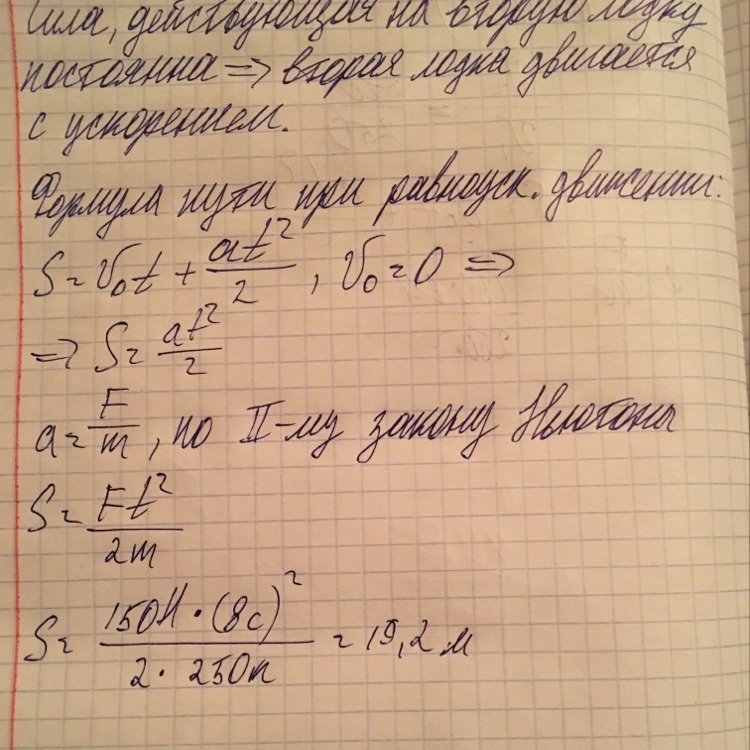 Сила, действующая на вторую лодку
постоянна => вторая лодка двигается
с ускорением.
Формула пути при равноуск. движении:
S = V₀t + at²/2 , V₀ = 0 =>
=> S = at²/2
a = F/m , по II-му закону Ньютона
S = Ft²/2m
S = 150Н · (8с)² / 2 · 250к = 19,2 м